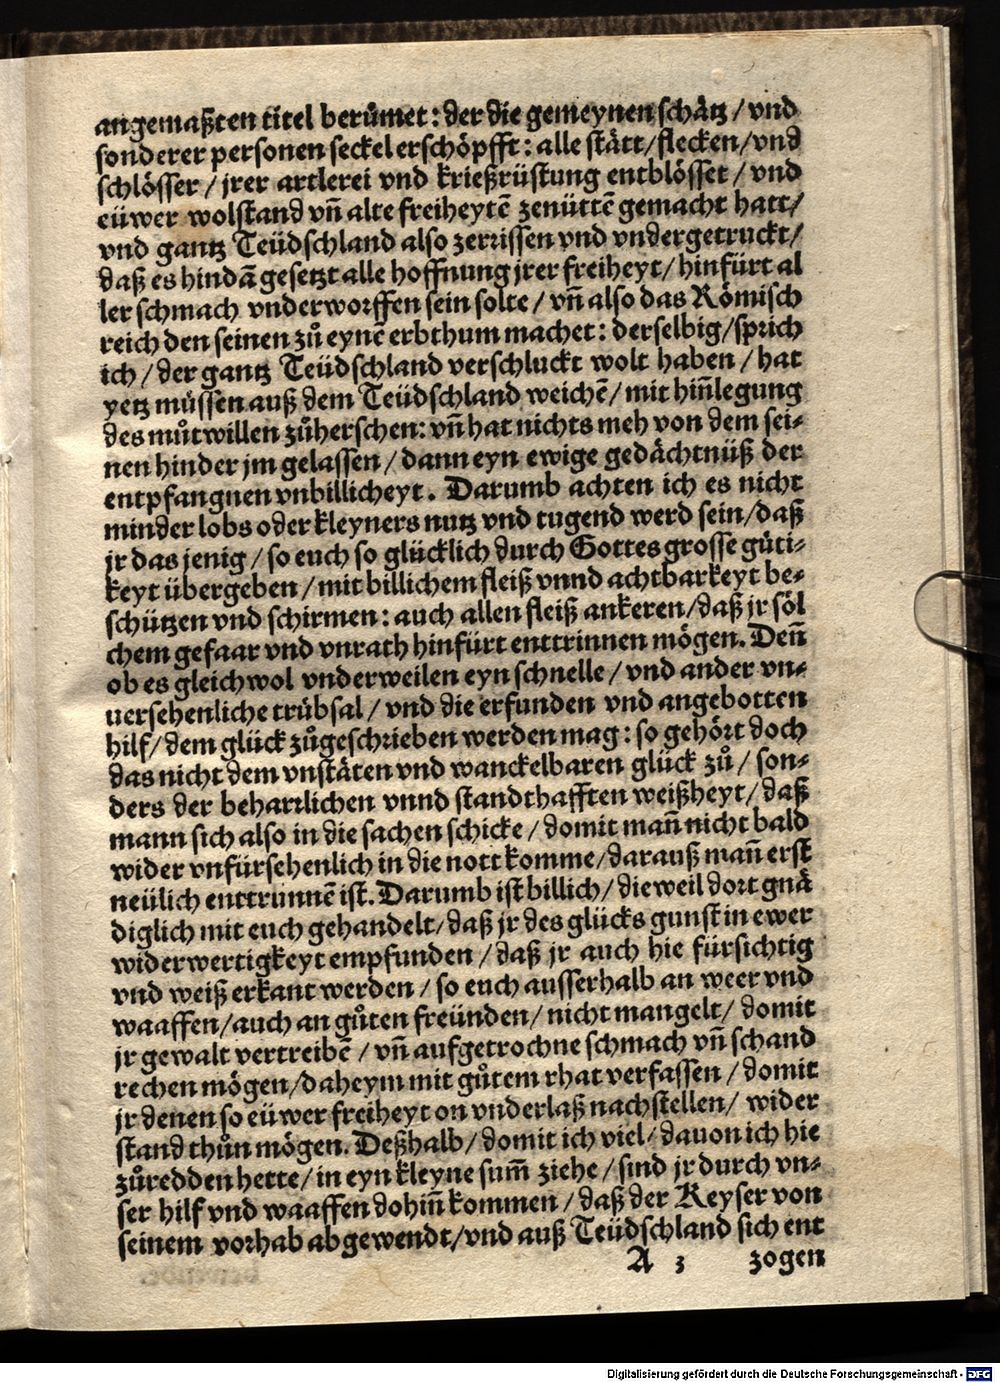 angemaßten titel berůmet: der die gemeynen schätz / vnd
sonderer personen seckel erschöpfft: alle stätt/flecken/vnd
schlösser / jrer artlerei vnd krießrüstung entblösset / vnd
eüwer wolstand vñ alte freiheytē zenüttē gemacht hatt/
vnd gantz Teüdschland also zerrissen vnd vndergetruckt/
daß es hindā gesetzt alle hoffnung jrer freiheyt/hinfürt al
ler schmach vnderworffen sein solte / vñ also das Römisch
reich den seinen zů eynē erbthum machet: derselbig/sprich
ich / der gantz Teüdschland verschluckt wolt haben / hat
yetz müssen auß dem Teüdschland weichē / mit hiñlegung
des můtwillen zůherschen: vñ hat nichts meh von dem sei⸗
nen hinder jm gelassen / dann eyn ewige gedächtnüß der
entpfangnen vnbillicheyt. Darumb achten ich es nicht
minder lobs oder kleyners nutz vnd tugend werd sein/daß
jr das jenig / so euch so glücklich durch Gottes grosse gůti⸗
keyt übergeben / mit billichem fleiß vnnd achtbarkeyt be⸗
schützen vnd schirmen: auch allen fleiß ankeren/daß jr söl
chem gefaar vnd vnrath hinfürt enttrinnen mögen. Deñ
ob es gleichwol vnderweilen eyn schnelle / vnd ander vn⸗
uersehenliche trůbsal / vnd die erfunden vnd angebotten
hilf/ dem glück zůgeschrieben werden mag: so gehört doch
das nicht dem vnstäten vnd wanckelbaren glück zů / son⸗
ders der beharrlichen vnnd standthafften weißheyt/daß
mann sich also in die sachen schicke / domit mañ nicht bald
wider vnfürsehenlich in die nott komme/darauß mañ erst
neülich enttrunnē ist. Darumb ist billich/ dieweil dort gnä
diglich mit euch gehandelt/daß jr des glücks gunst in ewer
widerwertigkeyt empfunden / daß jr auch hie fürsichtig
vnd weiß erkant werden / so euch ausserhalb an weer vnd
waaffen/auch an gůten freünden/ nicht mangelt/ domit
jr gewalt vertreibē / vñ aufgetrochne schmach vñ schand
rechen mögen/daheym mit gůtem rhat verfassen / domit
jr denen so eüwer freiheyt on vnderlaß nachstellen/ wider
stand thůn mögen. Deßhalb/domit ich viel/dauon ich hie
zůredden hette / in eyn kleyne sum̃ ziehe / sind jr durch vn⸗
ser hilf vnd waaffen dohiñ kommen / daß der Keyser von
seinem vorhab abgewendt/vnd auß Teüdschland sich ent
A 3 zogen
Digitalisierung gefördert durch die Deutsche Forschungsgemeinschaft - DFG